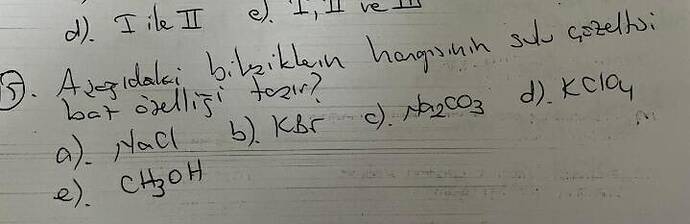 d). I ile II e). I, II ve III
5. Aşağıdaki bileşiklerin hangisinin sulu çözeltisi
baz özelliği taşır?
a). NaCl b). KBr c). Na2CO3 d). KClO4
e). CH3OH